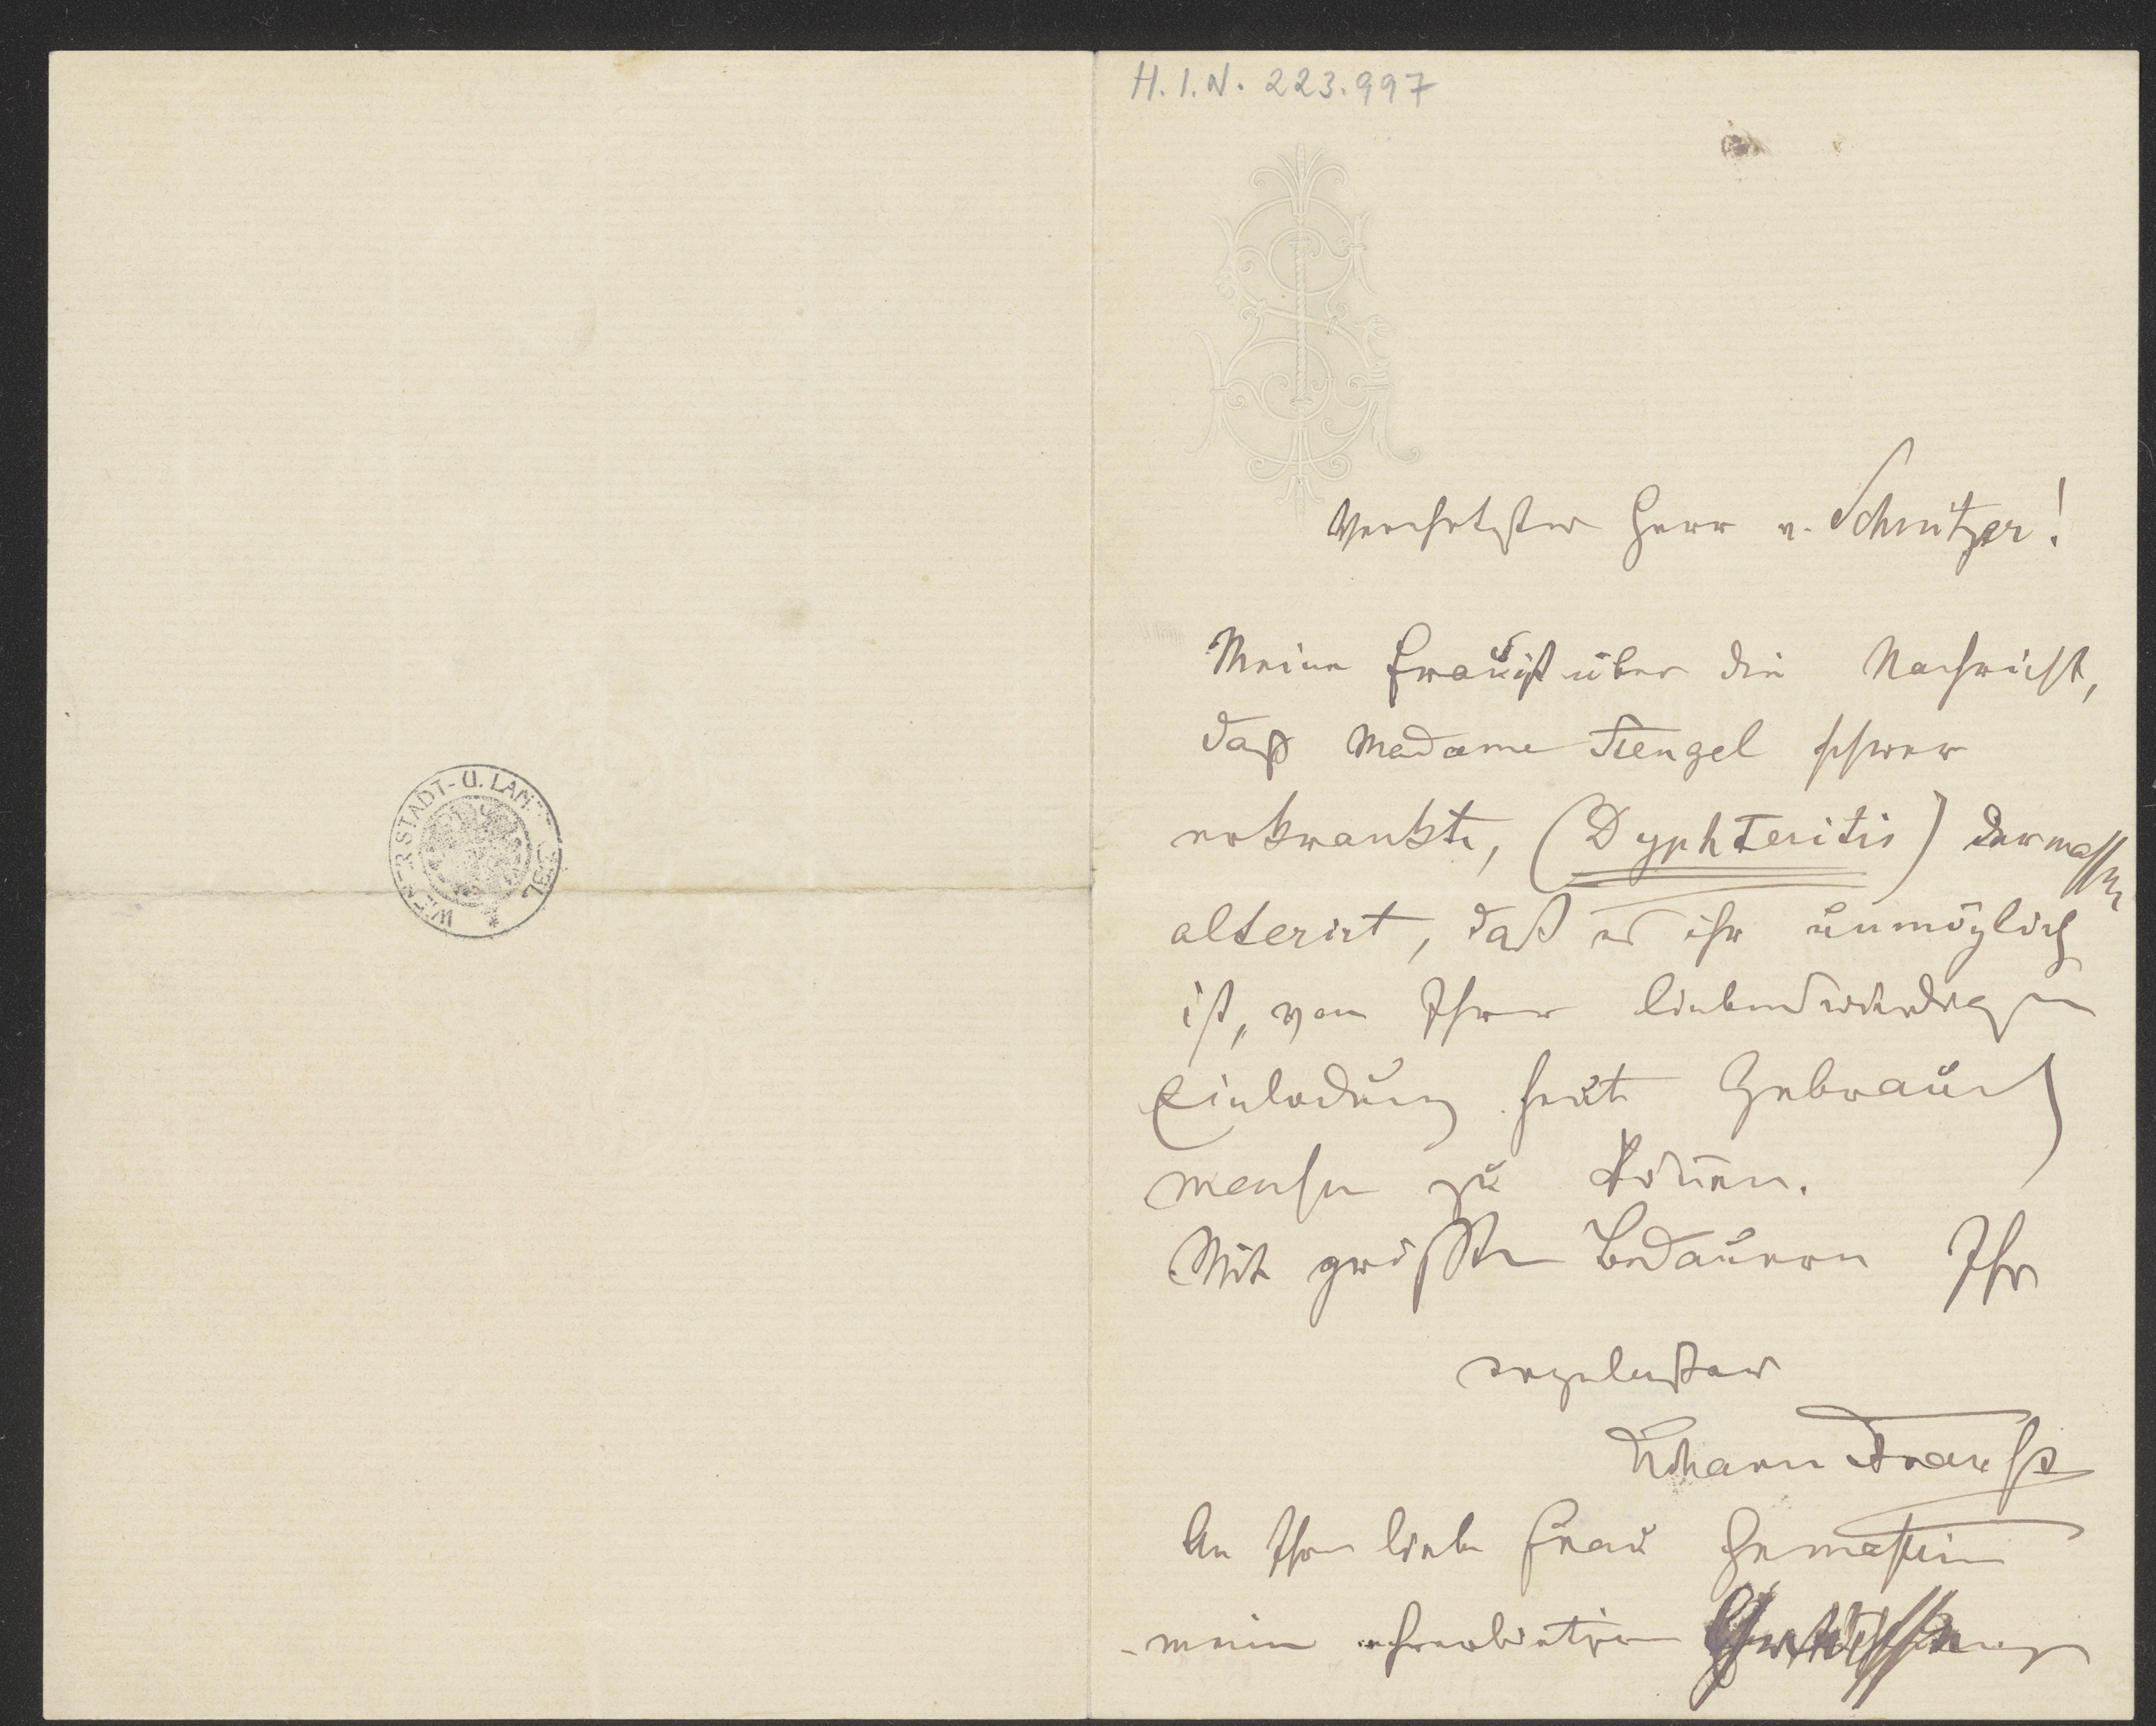 H.I.N. 223.997
Verehrtester Herr v. Schnitzer!
Meine Frau ist über die Nachricht,
daß Madame Stengel schwer
erkrankte, (Dyphteritis) dermassen
alterirt, daß es ihr unmöglich
ist, von Ihrer liebenswürdigen
Einladung heute Gebrauch
machen zu können.
Mit größten Bedauern Ihr
ergebenster
Johann Strauss
An Ihre liebe Frau Gemahlin
meine ehrerbietigen
WIENER STADT- U. LAN